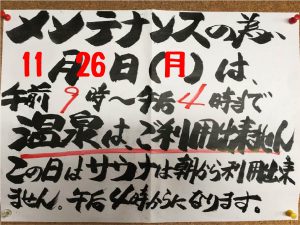 メンテナンスの為、
11月26日(月)は、
午前9時～午后4時まで
温泉は、ご利用出来ません
この日はサウナは朝から利用出来
ません。午后4時からになります。